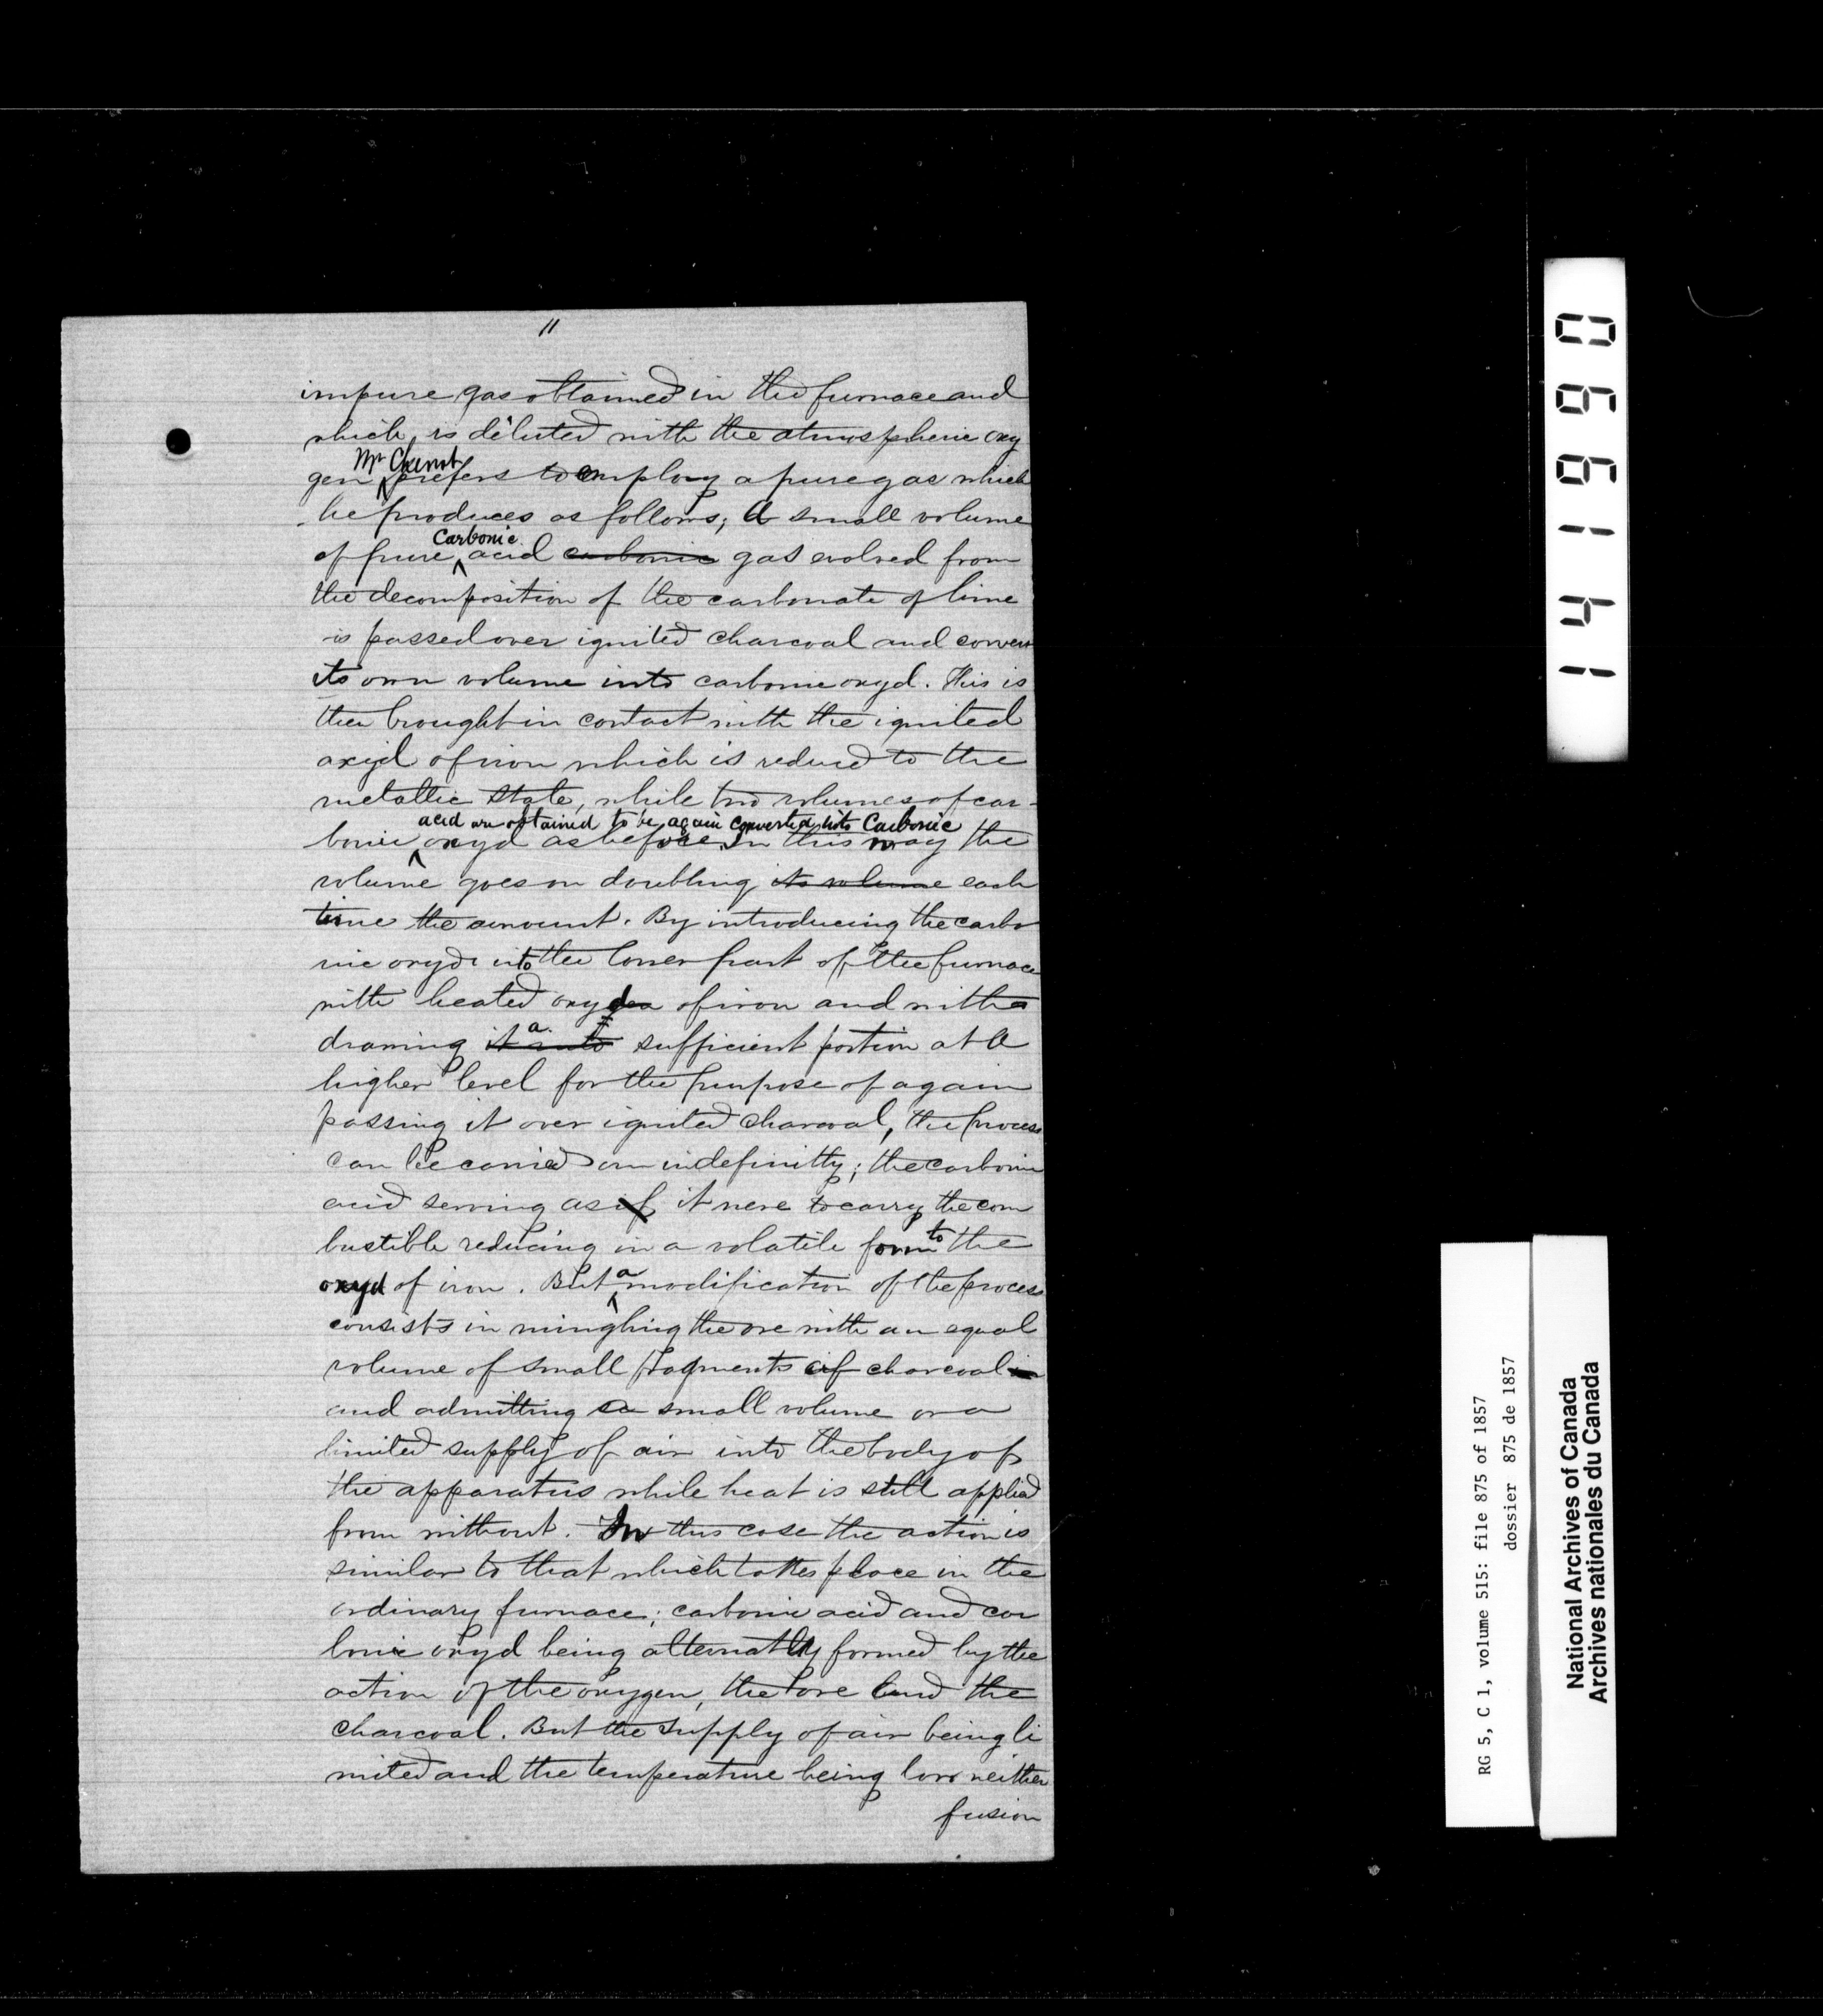 11
impure gas obtained in the furnace and
which is diluted with the atmospheric oxy
Mr Chenot
gen prefers to employ a pure gas which
he produces as follows; A small volume
Carbonic
of pure acid carbonic gas evolved from
the decomposition of the carbonate of lime
is passed over ignited charcoal and convert
its own volume into carbonic oxyd. This is
then brought in contact with the ignited
oxyd of iron which is reduced to the
metallic state, while two volumes of car-
acid are obtained to be again converted into Carbonic
bonic oxyd as before. In this way the
volume goes on doubling its volume each
time the amount. By introducing the carbo
nic oxyde into the lower part of the furnace
with heated oxydes of iron and with
a
drawing it into sufficient portion at a
higher level for the purpose of again
passing it over ignited charcoal, the process
can be carried on indefinitly; the carbonic
acid serving as if it were to carry the com
bustible reducing in a volatile form to the
a
oxyd of iron. But modification of the process
consists in mingling the ore with an equal
volume of small fragments of charcoal
and admitting a small volume or a
limited supply of air into the body of
the apparatus while heat is still applied
from without. In this case the action is
similar to that which takes place in the
ordinary furnace; carbonic acid and car
bonic oxyd being alternatly formed by the
action of the oxygen, the ore and the
charcoal. But the supply of air being li
mited and the temperature being low neither
fusion
141990
RG 5, C 1, volume 515: file 875 of 1857
dossier 875 de 1857
National Archives of Canada
Archives nationales du Canada